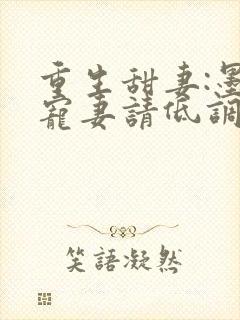 重生甜妻:墨
寵妻請低調
笑語凝然